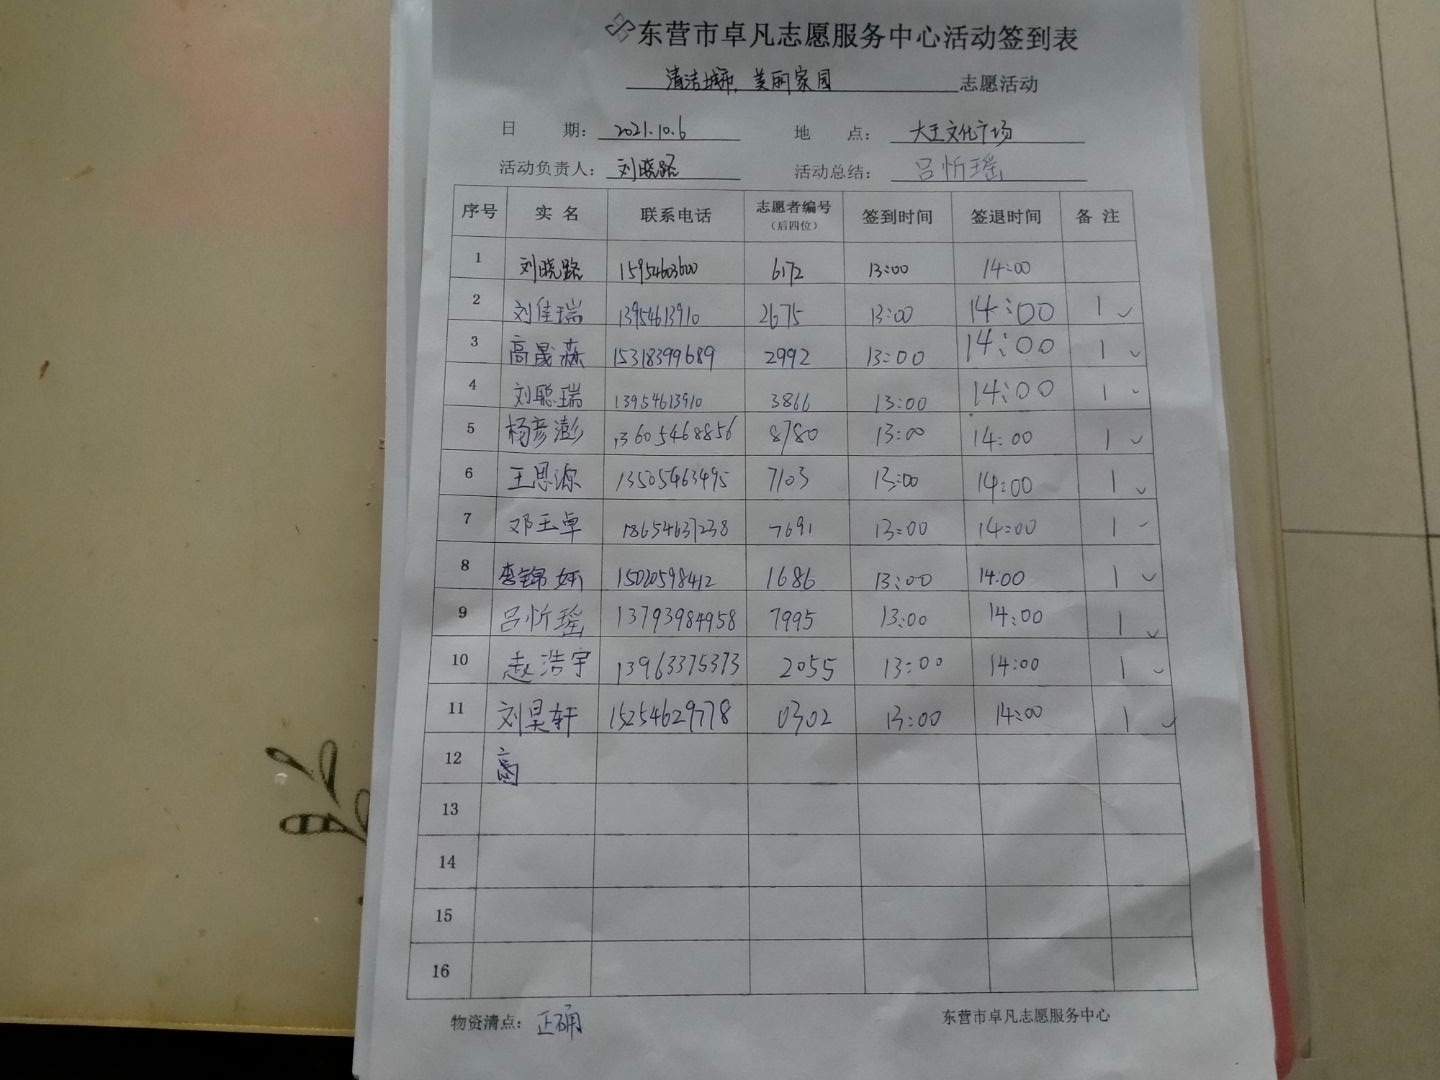 东营市卓凡志愿服务中心活动签到表
清洁城市,美丽家园 志愿活动
日 期: 2021.10.6 地 点: 大王文化广场
活动负责人: 刘晓路 活动总结: 吕忻瑶
序号 实 名 联系电话 志愿者编号 (后四位) 签到时间 签退时间 备 注
1 刘晓路 15954603600 6172 13:00 14:00
2 刘佳瑞 13954613910 2675 13:00 14:00 1 ✓
3 高晟森 15318399689 2992 13:00 14:00 1 ✓
4 刘聪瑞 13954613910 3866 13:00 14:00 1 ✓
5 杨彦澎 13605468856 8780 13:00 14:00 1 ✓
6 王思源 13505463495 7103 13:00 14:00 1 ✓
7 邓玉卓 18654637238 7691 13:00 14:00 1 ✓
8 李锦妍 15020598412 1686 13:00 14:00 1 ✓
9 吕忻瑶 13793984958 7995 13:00 14:00 1 ✓
10 赵浩宇 13963375373 2055 13:00 14:00 1 ✓
11 刘昊轩 15254629778 0302 13:00 14:00 1 ✓
12
13
14
15
16
物资清点: 正确 东营市卓凡志愿服务中心